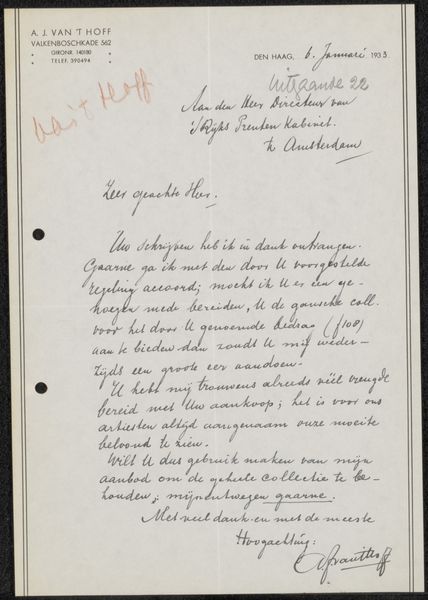 A. J. VAN 'T HOFF
VALKENBOSCHKADE 562
GIRONR. 140180
TELEF. 390494
DEN HAAG, 6 Januari 1933.
van 't Hoff
Uitgaande 22
Aan den Heer Directeur van
's Rijks Prenten Kabinet.
te Amsterdam
Zeer geachte Heer.
Uw schrijven heb ik in dank ontvangen.
Gaarne ga ik met den door U voorgestelde
regeling accoord; mocht ik U er een ge-
noegen mede bereiden, U de gansche coll.
voor het door U genoemde bedrag (f108)
aan te bieden dan zoudt U mij weder-
zijds een groote eer aandoen.
U hebt mij trouwens alreeds véél vreugde
bereid met Uw aankoop; het is voor ons
artiesten altijd aangenaam onze moeite
beloond te zien.
Wilt U dus gebruik maken van mijn
aanbod om de geheele collectie te be-
houden; mijnentwegen gaarne.
Met veel dank en met de meeste
Hoogachting:
AJvan'tHoff